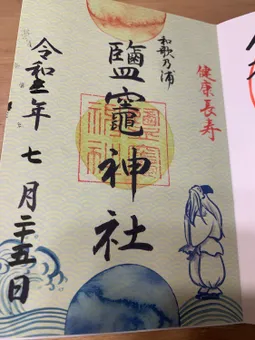 健康長寿
和歌乃浦
鹽竈神社
令和五年七月二十五日